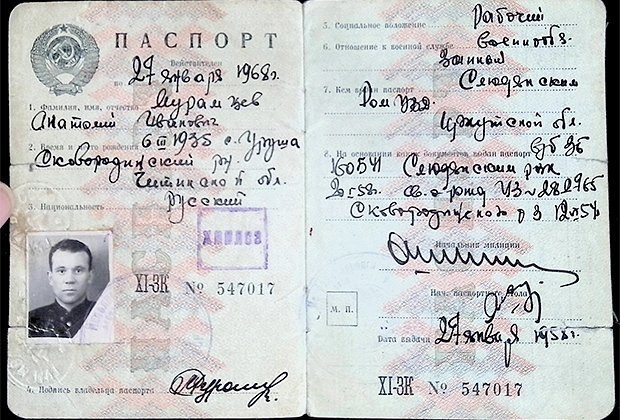 ПАСПОРТ
Действителен
по 27 января 1968г.
1. Фамилия, имя, отчество Мурамцев
Анатолий Иванович
2. Время и место рождения 6 III 1935 с. Уруша
Сковородинский р.
Читинской обл.
3. Национальность русский
XI-ЗК № 547017
4. Подпись владельца паспорта
5. Социальное положение Рабочий
6. Отношение к военной службе военнообязанный
7. Кем выдан паспорт Слюдянским
Ром УВД
Иркутской обл.
8. На основании каких документов выдан паспорт
160541 Слюдянским
Сковородинского
Начальник милиции
М. П.
Нач. паспортного стола
Дата выдачи 27 января 1958г.
XI-ЗК № 547017